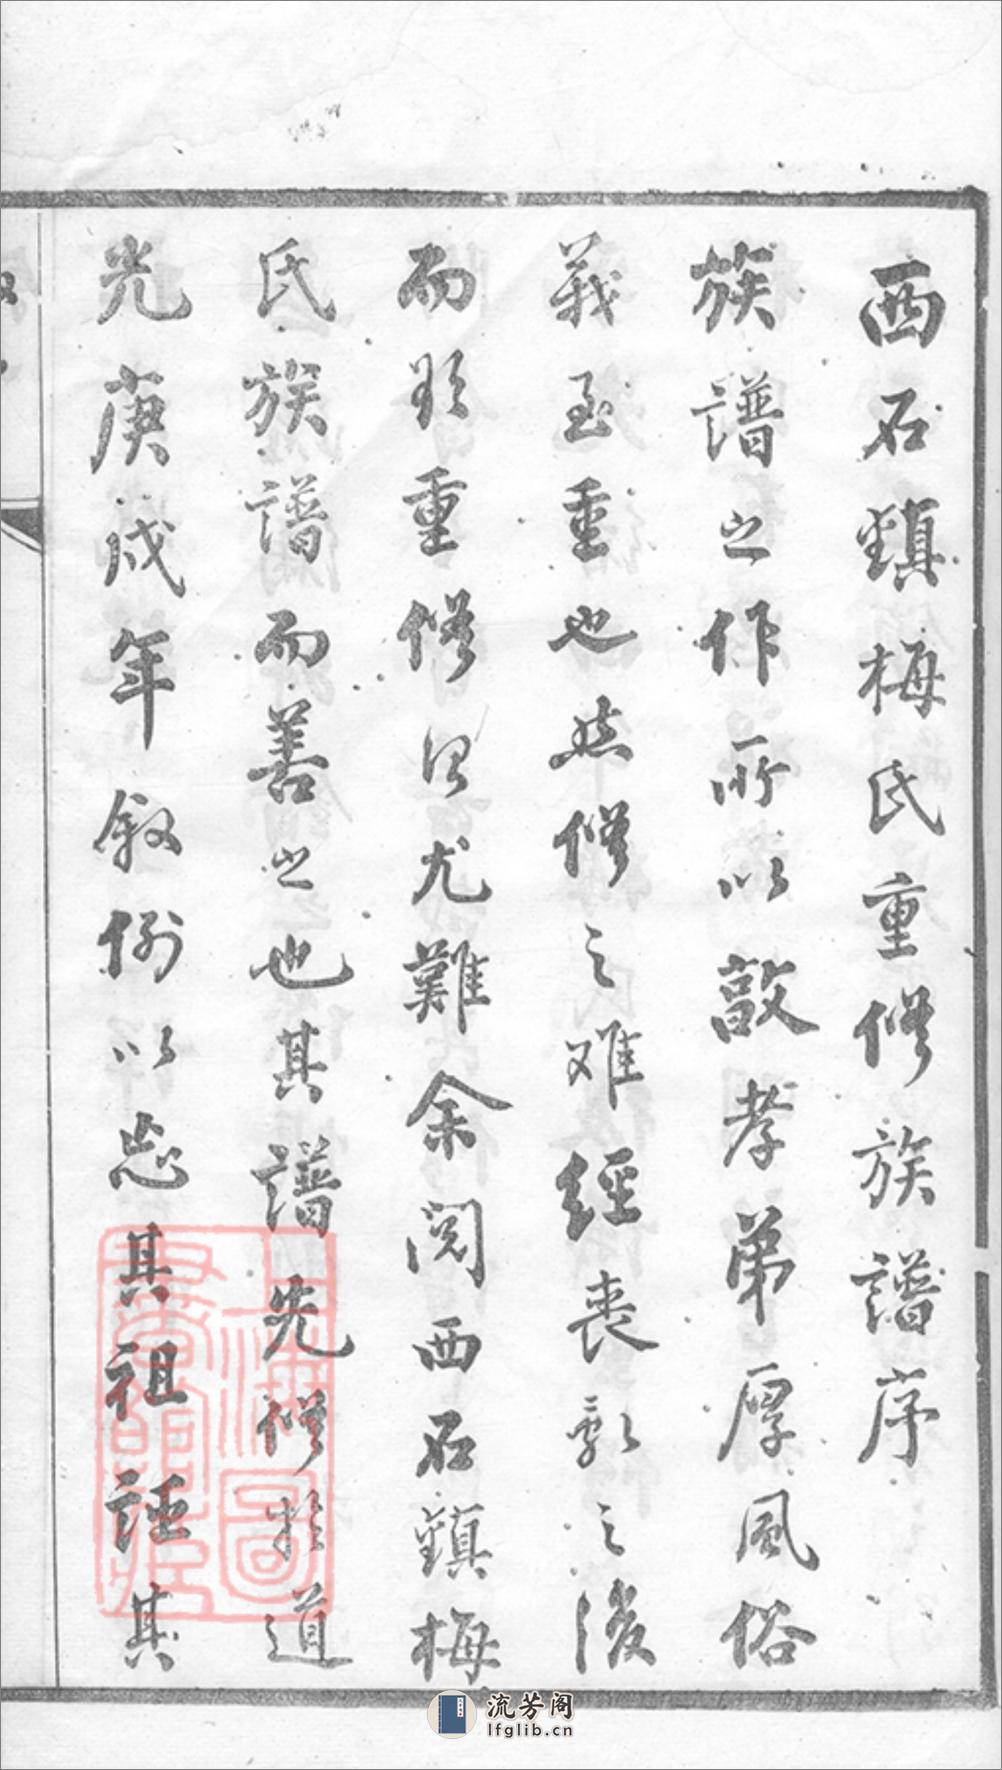 西石鎮梅氏重修族譜序
族譜之作所以敦孝弟厚風俗
義至重也然修之难經喪亂之後
而欲重修得尤難余閲西石鎮梅
氏族譜而善之也其譜先修於道
光庚戌年叙例以志其祖誌其
上海圖書館藏
流芳阁
lfglib.cn